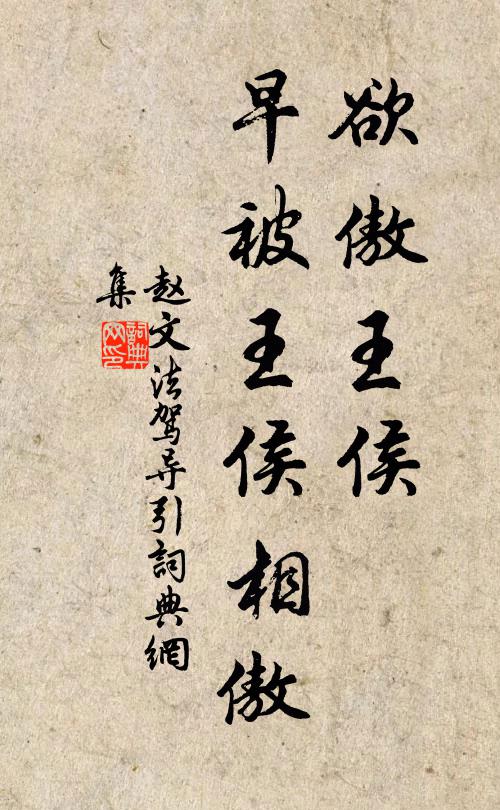 欲傲王侯
早被王侯相傲
赵文法驾导引詞典網
集
詞典網印